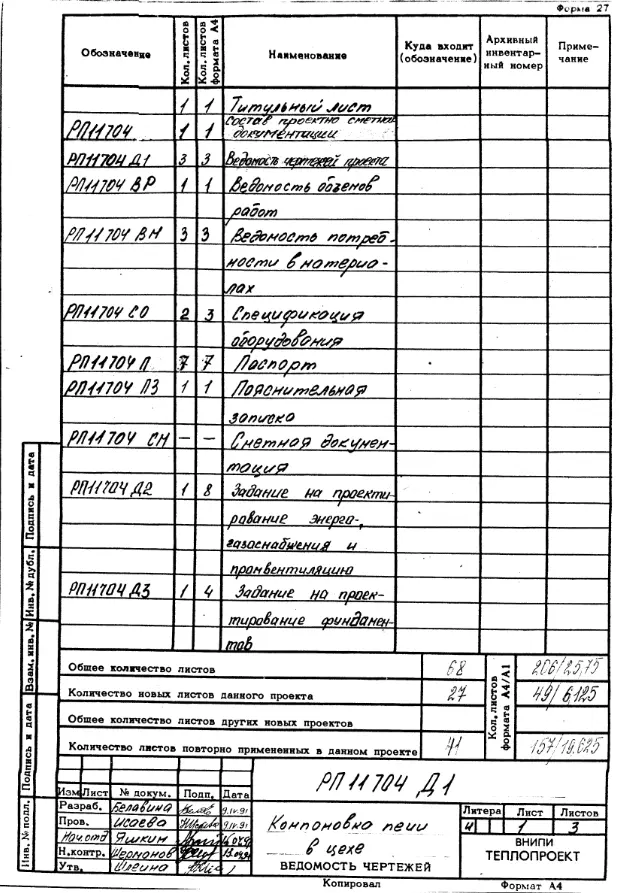 Форма 27
Обозначение Кол. листов Кол. листов формата А4 Наименование Куда входит (обозначение) Архивный инвентарный номер Примечание
1 1 Титульный лист
Состав проектно сметной
РП11704 1 1 документации
РП11704 Д1 3 3 Ведомость чертежей проекта
РП11704 ВР 1 1 Ведомость объемов
работ
РП11704 ВМ 3 3 Ведомость потреб-
ности в материа-
лах
РП11704 СО 2 3 Спецификация
оборудования
РП11704 П 7 7 Паспорт
РП11704 ПЗ 1 1 Пояснительная
записка
РП11704 СМ — — Сметная докумен-
тация
РП11704 Д2 1 8 Задание на проекти-
рование энерго-,
газоснабжения и
промвентиляцию
РП11704 Д3 1 4 Задание на проек-
тирование фундамен-
тов
Общее количество листов 68 Кол. листов формата А4/А1 206/25,75
Количество новых листов данного проекта 27 49/6,125
Общее количество листов других новых проектов
Количество листов повторно примененных в данном проекте 41 157/19,625
Подпись и дата
Инв. № дубл.
Взам. инв. №
Подпись и дата
Инв. № подл.
РП 11704 Д1
Изм Лист № докум. Подп. Дата
Разраб. Белавина 9.IV.91
Пров. Исаева 9.IV.91
Нач.отд Яшкин
Н.контр.
Утв.
Компоновка печи
в цехе
ВЕДОМОСТЬ ЧЕРТЕЖЕЙ
Литера Лист Листов
И 1 3
ВНИПИ
ТЕПЛОПРОЕКТ
Копировал Формат А4